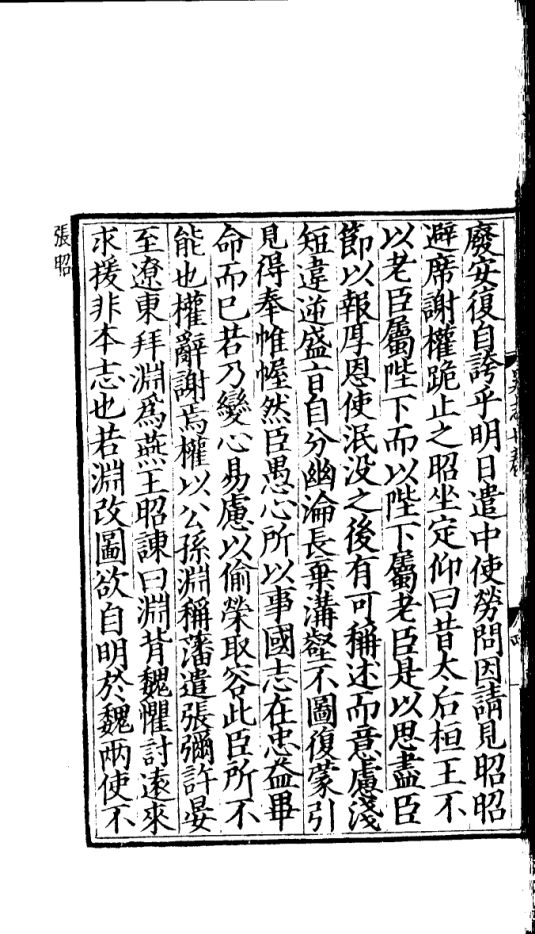 廢安復自誇乎明日遣中使勞問因請見昭昭
避席謝權跪止之昭坐定仰曰昔太后桓王不
以老臣屬陛下而以陛下屬老臣是以思盡臣
節以報厚恩使泯没之後有可稱述而意慮淺
短違逆盛旨自分幽淪長棄溝壑不圖復蒙引
見得奉帷幄然臣愚心所以事國志在忠益畢
命而已若乃變心易慮以偷榮取容此臣所不
能也權辭謝焉權以公孫淵稱藩遣張彌許晏
至遼東拜淵爲燕王昭諫曰淵背魏懼討遠來
求援非本志也若淵改圖欲自明於魏兩使不
張昭